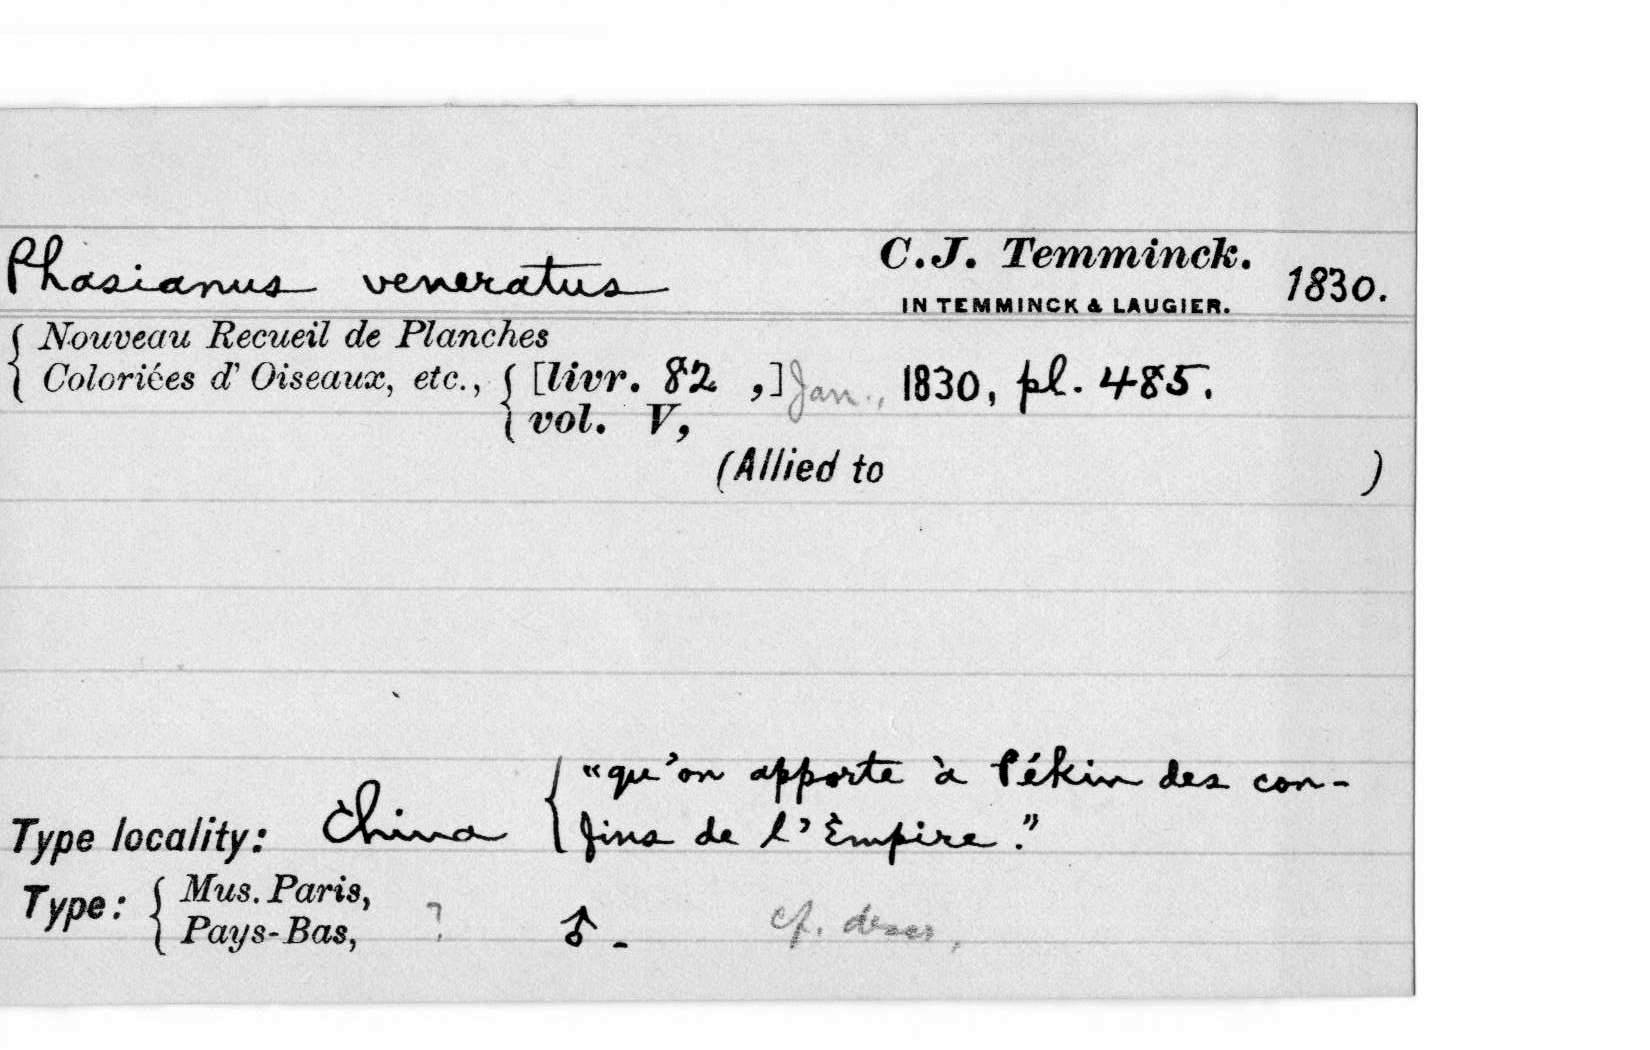 Phasianus veneratus C.J. Temminck. 1830.
IN TEMMINCK & LAUGIER.
Nouveau Recueil de Planches
Coloriées d' Oiseaux, etc., [livr. 82 ,] Jan., 1830, pl. 485.
vol. V,
(Allied to )
"qu'on apporte à Pékin des con-
Type locality: China fins de l'Empire."
Mus. Paris,
Type: ? ♂ - cf. descr.,
Pays-Bas,